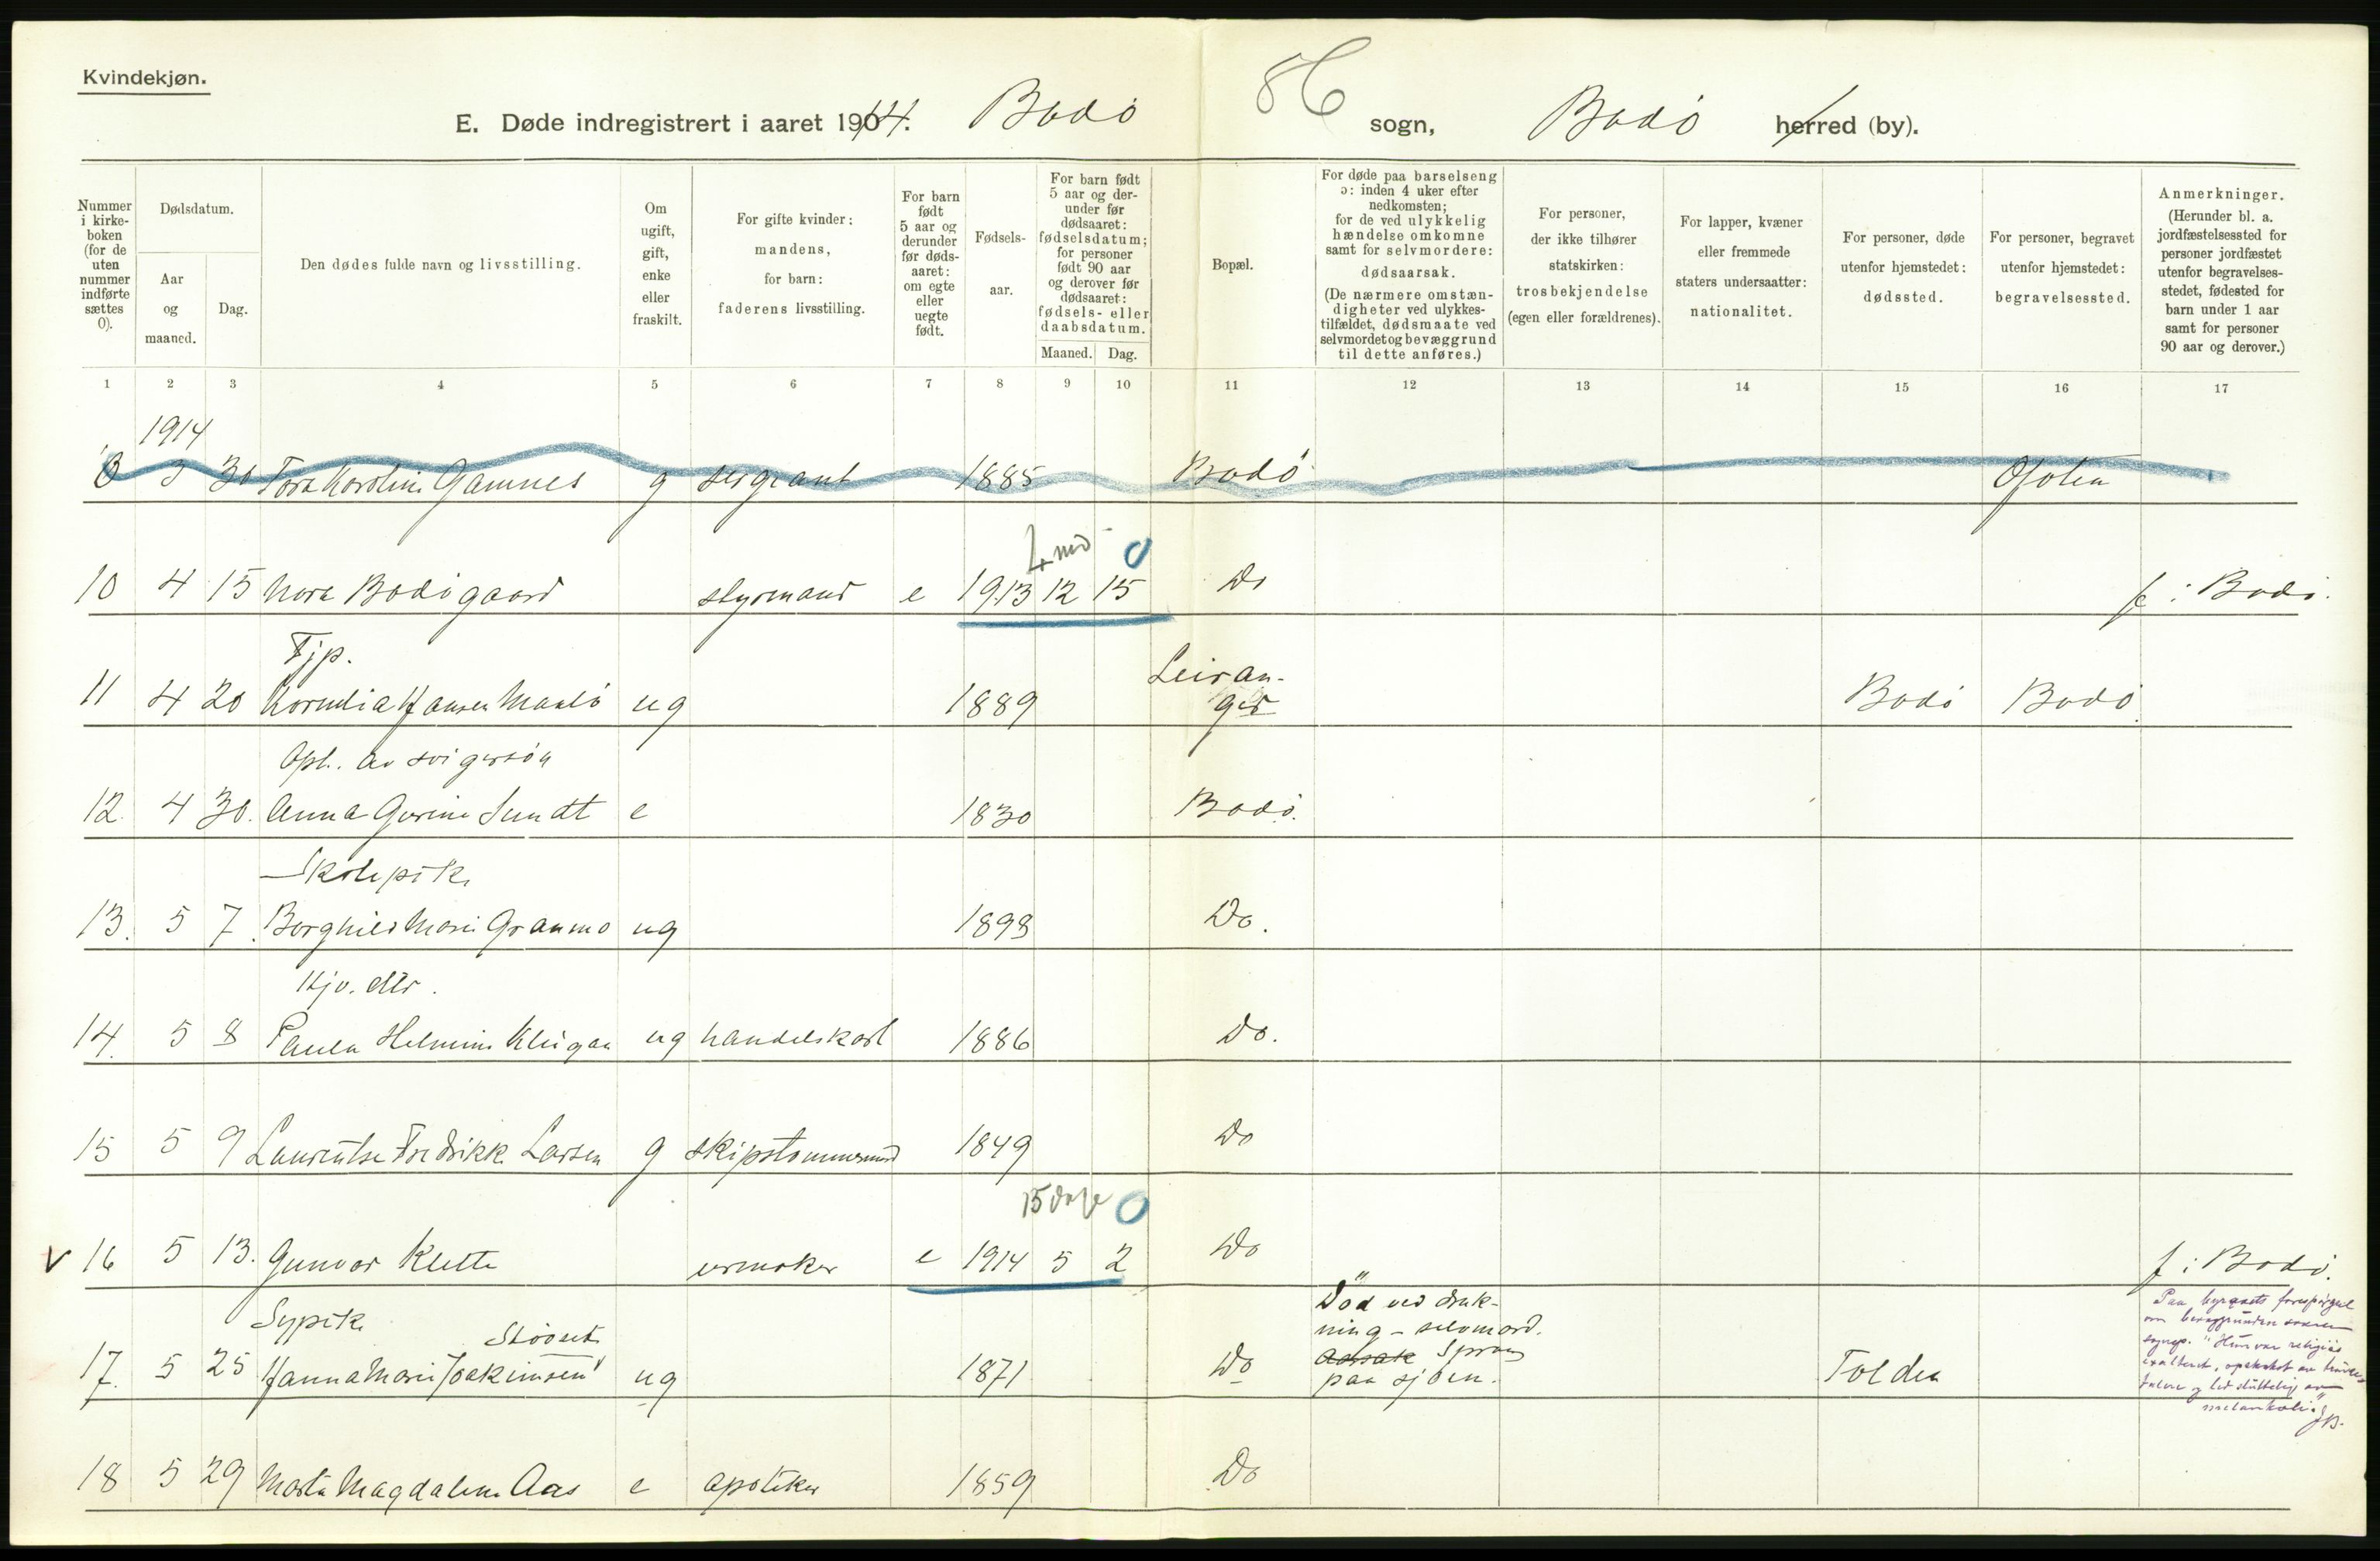 Kvindekjøn.
86
E. Døde indregistrert i aaret 1914. Bodø sogn, Bodø herred (by).
Nummer i kirke-boken (for de uten nummer indførte sættes 0).
Dødsdatum.
Aar og maaned.
Dag.
Den dødes fulde navn og livsstilling.
Om ugift, gift, enke eller fraskilt.
For gifte kvinder: mandens, for barn: faderens livsstilling.
For barn født 5 aar og derunder før døds-aaret: om egte eller uegte født.
Fødsels-aar.
For barn født 5 aar og der-under før dødsaaret: fødselsdatum; for personer født 90 aar og derover før dødsaaret: fødsels- eller daabsdatum.
Maaned. Dag.
Bopæl.
For døde paa barselseng ɔ: inden 4 uker efter nedkomsten; for de ved ulykkelig hændelse omkomne samt for selvmordere: dødsaarsak. (De nærmere omstæn-digheter ved ulykkes-tilfældet, dødsmaate ved selvmordet og bevæggrund til dette anføres.)
For personer, der ikke tilhører statskirken: trosbekjendelse (egen eller forældrenes).
For lapper, kvæner eller fremmede staters undersaatter: nationalitet.
For personer, døde utenfor hjemstedet: dødssted.
For personer, begravet utenfor hjemstedet: begravelsessted.
Anmerkninger. (Herunder bl. a. jordfæstelsessted for personer jordfæstet utenfor begravelses-stedet, fødested for barn under 1 aar samt for personer 90 aar og derover.)
1 2 3 4 5 6 7 8 9 10 11 12 13 14 15 16 17
1914
3 30 Tora Karoline Gamnes g sergeant 1885 Bodø Ofoten
4 md 0
10 4 15 Nora Bodøgaard styrmand e 1913 12 15 Do f. i Bodø.
Tjp. Leiran-
11 4 20 Kornelia Hansen ug 1889 ger Bodø Bodø
Opl. av svigersøn
12. 4 30. Anna Gurine Sundt e 1830 Bodø.
Skolepike
13. 5 7. Borghild Marie Granmo ug 1898 Do.
Hjv. dtr.
14. 5 8 Paula Helmine ug handelskarl 1886 Do.
15 5 9 Laurentse Fredrikke Larsen g skipstømmermand 1849 Do
15 dage 0
V 16 5 13. Gunvor Klette urmaker e 1914 5 2 Do f. i Bodø.
Sypike Støvset Død ved druk-
ning - selvmord.
17. 5 25 Hanna Marie Joakimsen ug 1871 Do Aarsak Sprang Tolder
paa sjøen.
Paa byraaets forespørsel
om bevæggrunden svarer
sognep. "Hun var religiøs
exalteret, opskaket av
og led sluttelig av
melankoli." JB.
18 5 29 Marta Magdalene Aas e apoteker 1859 Do